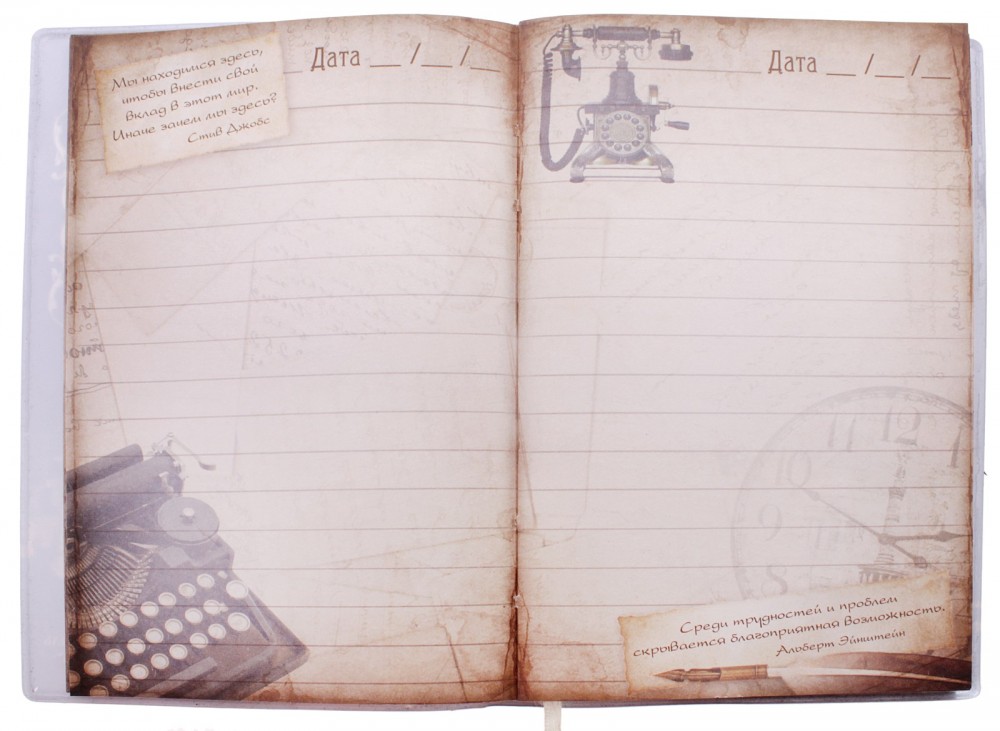 Мы находимся здесь,
чтобы внести свой
вклад в этот мир.
Иначе зачем мы здесь?
Стив Джобс
Дата __ /__ /__
Дата __ /__ /__
11 12 1
10
9
8
Среди трудностей и проблем
скрывается благоприятная возможность.
Альберт Эйнштейн